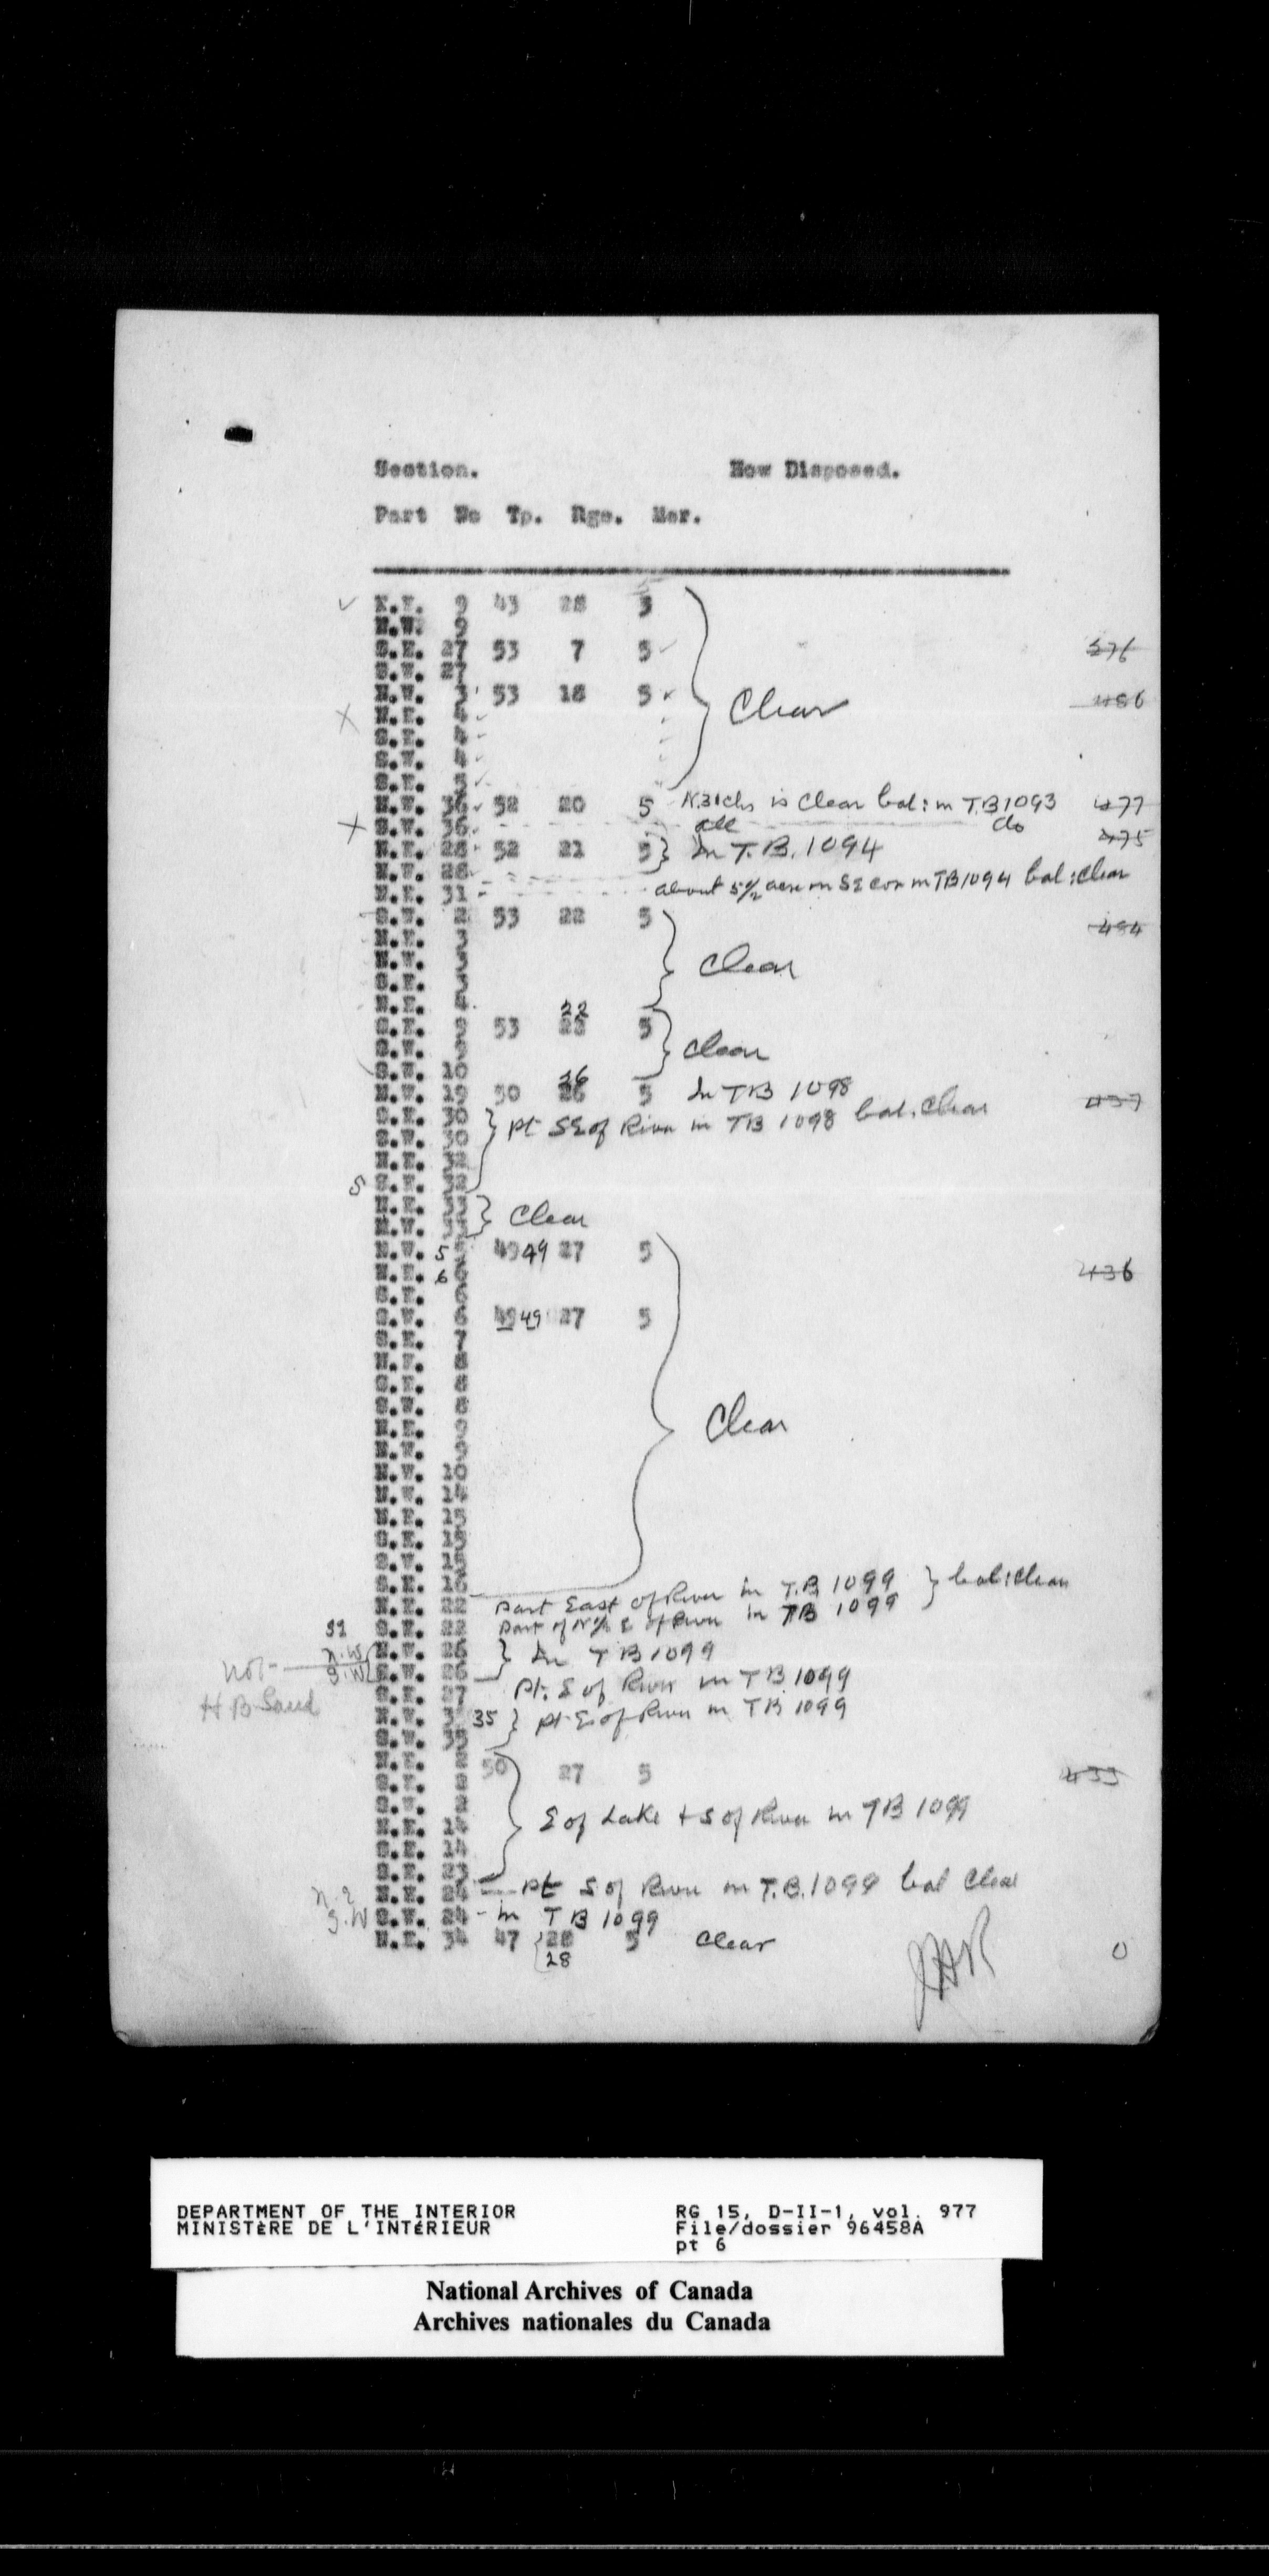 Section. How Disposed.
Part No Tp. Rge. Mer.
N.E. 9 43 28 3
N.W. 9
S.E. 27 53 7 5 376
S.W. 27
N.W. 3 53 18 5 Clear 486
N.E. 4
S.E. 4
S.W. 4
S.E. 5
N.W. 36 52 20 5 N.31chs is Clear bal: in T.B 1093 477
S.W. 36 all do 475
N.E. 28 52 21 5 In T.B. 1094
N.W. 28
N.E. 31 about 5 1/2 acre in SE cor in TB 1094 bal: Clear
S.W. 2 53 22 5 484
N.E. 3
N.W. 3
S.E. 3 Clear
N.E. 4
22
S.E. 9 53 5
S.W. 9 Clear
S.W. 10
26
N.W. 19 50 26 5 In TB 1098 437
S.E. 30 pt SE of River in TB 1098 bal. Clear
S.W. 30
S
Clear
N.W. 5 49 49 27 5
N.E. 6 436
S.E. 6
S.W. 6 49 49 27 5
S.E. 7
N.E. 8
S.E. 8
S.W. 8
N.E. 9 Clear
N.W. 9
N.W. 10
N.W. 14
N.E. 15
S.E. 15
S.W. 15
S.E. 16
N.E. 22 part East of River in T.B. 1099 bal: Clear
S.E. 22 part of N 1/2 E of River in TB 1099
N.W. 26 n.W In TB 1099
not S.W. 26 S.W
H B Land S.E. 27 pt. E of River in TB 1099
N.W. 35 pt E of River in TB 1099
S.W. 35
50 27 5 433
E of Lake + S of River in TB 1099
N.E. 14
S.E. 14
S.E. 23
N.E. 24 pt S of River in T.B. 1099 bal Clear
S.W S.W. 24 - in TB 1099
N.E. 34 47 28 5 Clear
28
DEPARTMENT OF THE INTERIOR RG 15, D-II-1, vol. 977
MINISTÈRE DE L'INTÉRIEUR File/dossier 96458A
pt 6
National Archives of Canada
Archives nationales du Canada